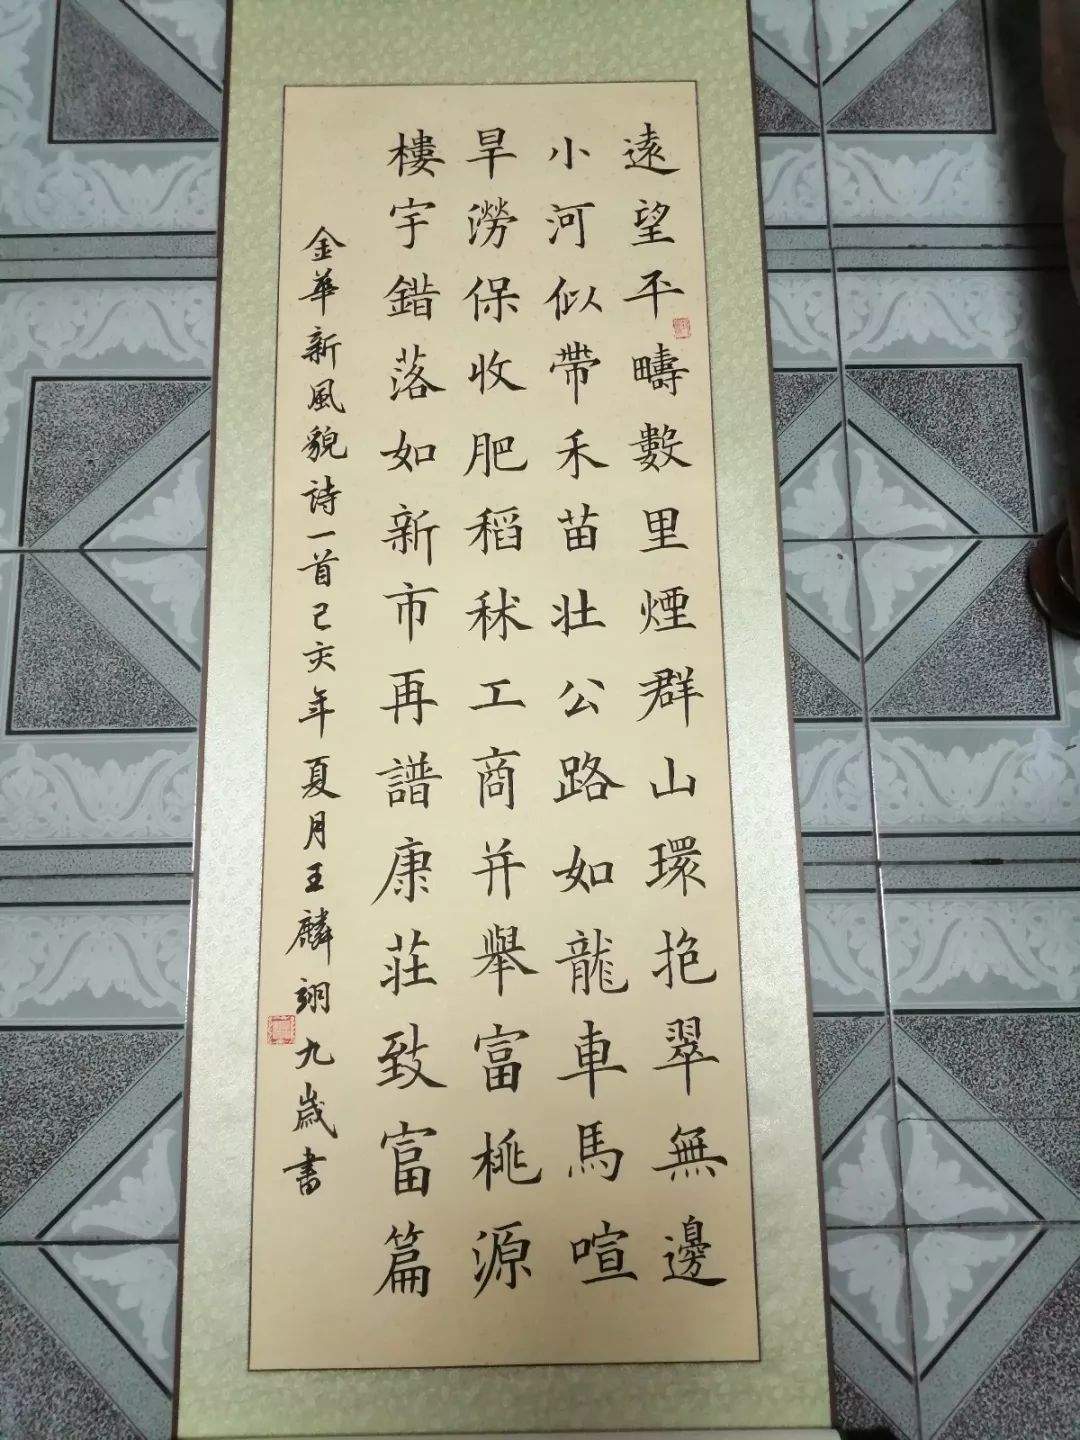 遠望平疇數里煙群山環抱翠無邊
小河似帶禾苗壯公路如龍車馬喧
旱澇保收肥稻秫工商并舉富桃源
樓宇錯落如新市再譜康莊致富篇
金華新風貌詩一首己亥年夏月王麟翊九歲書